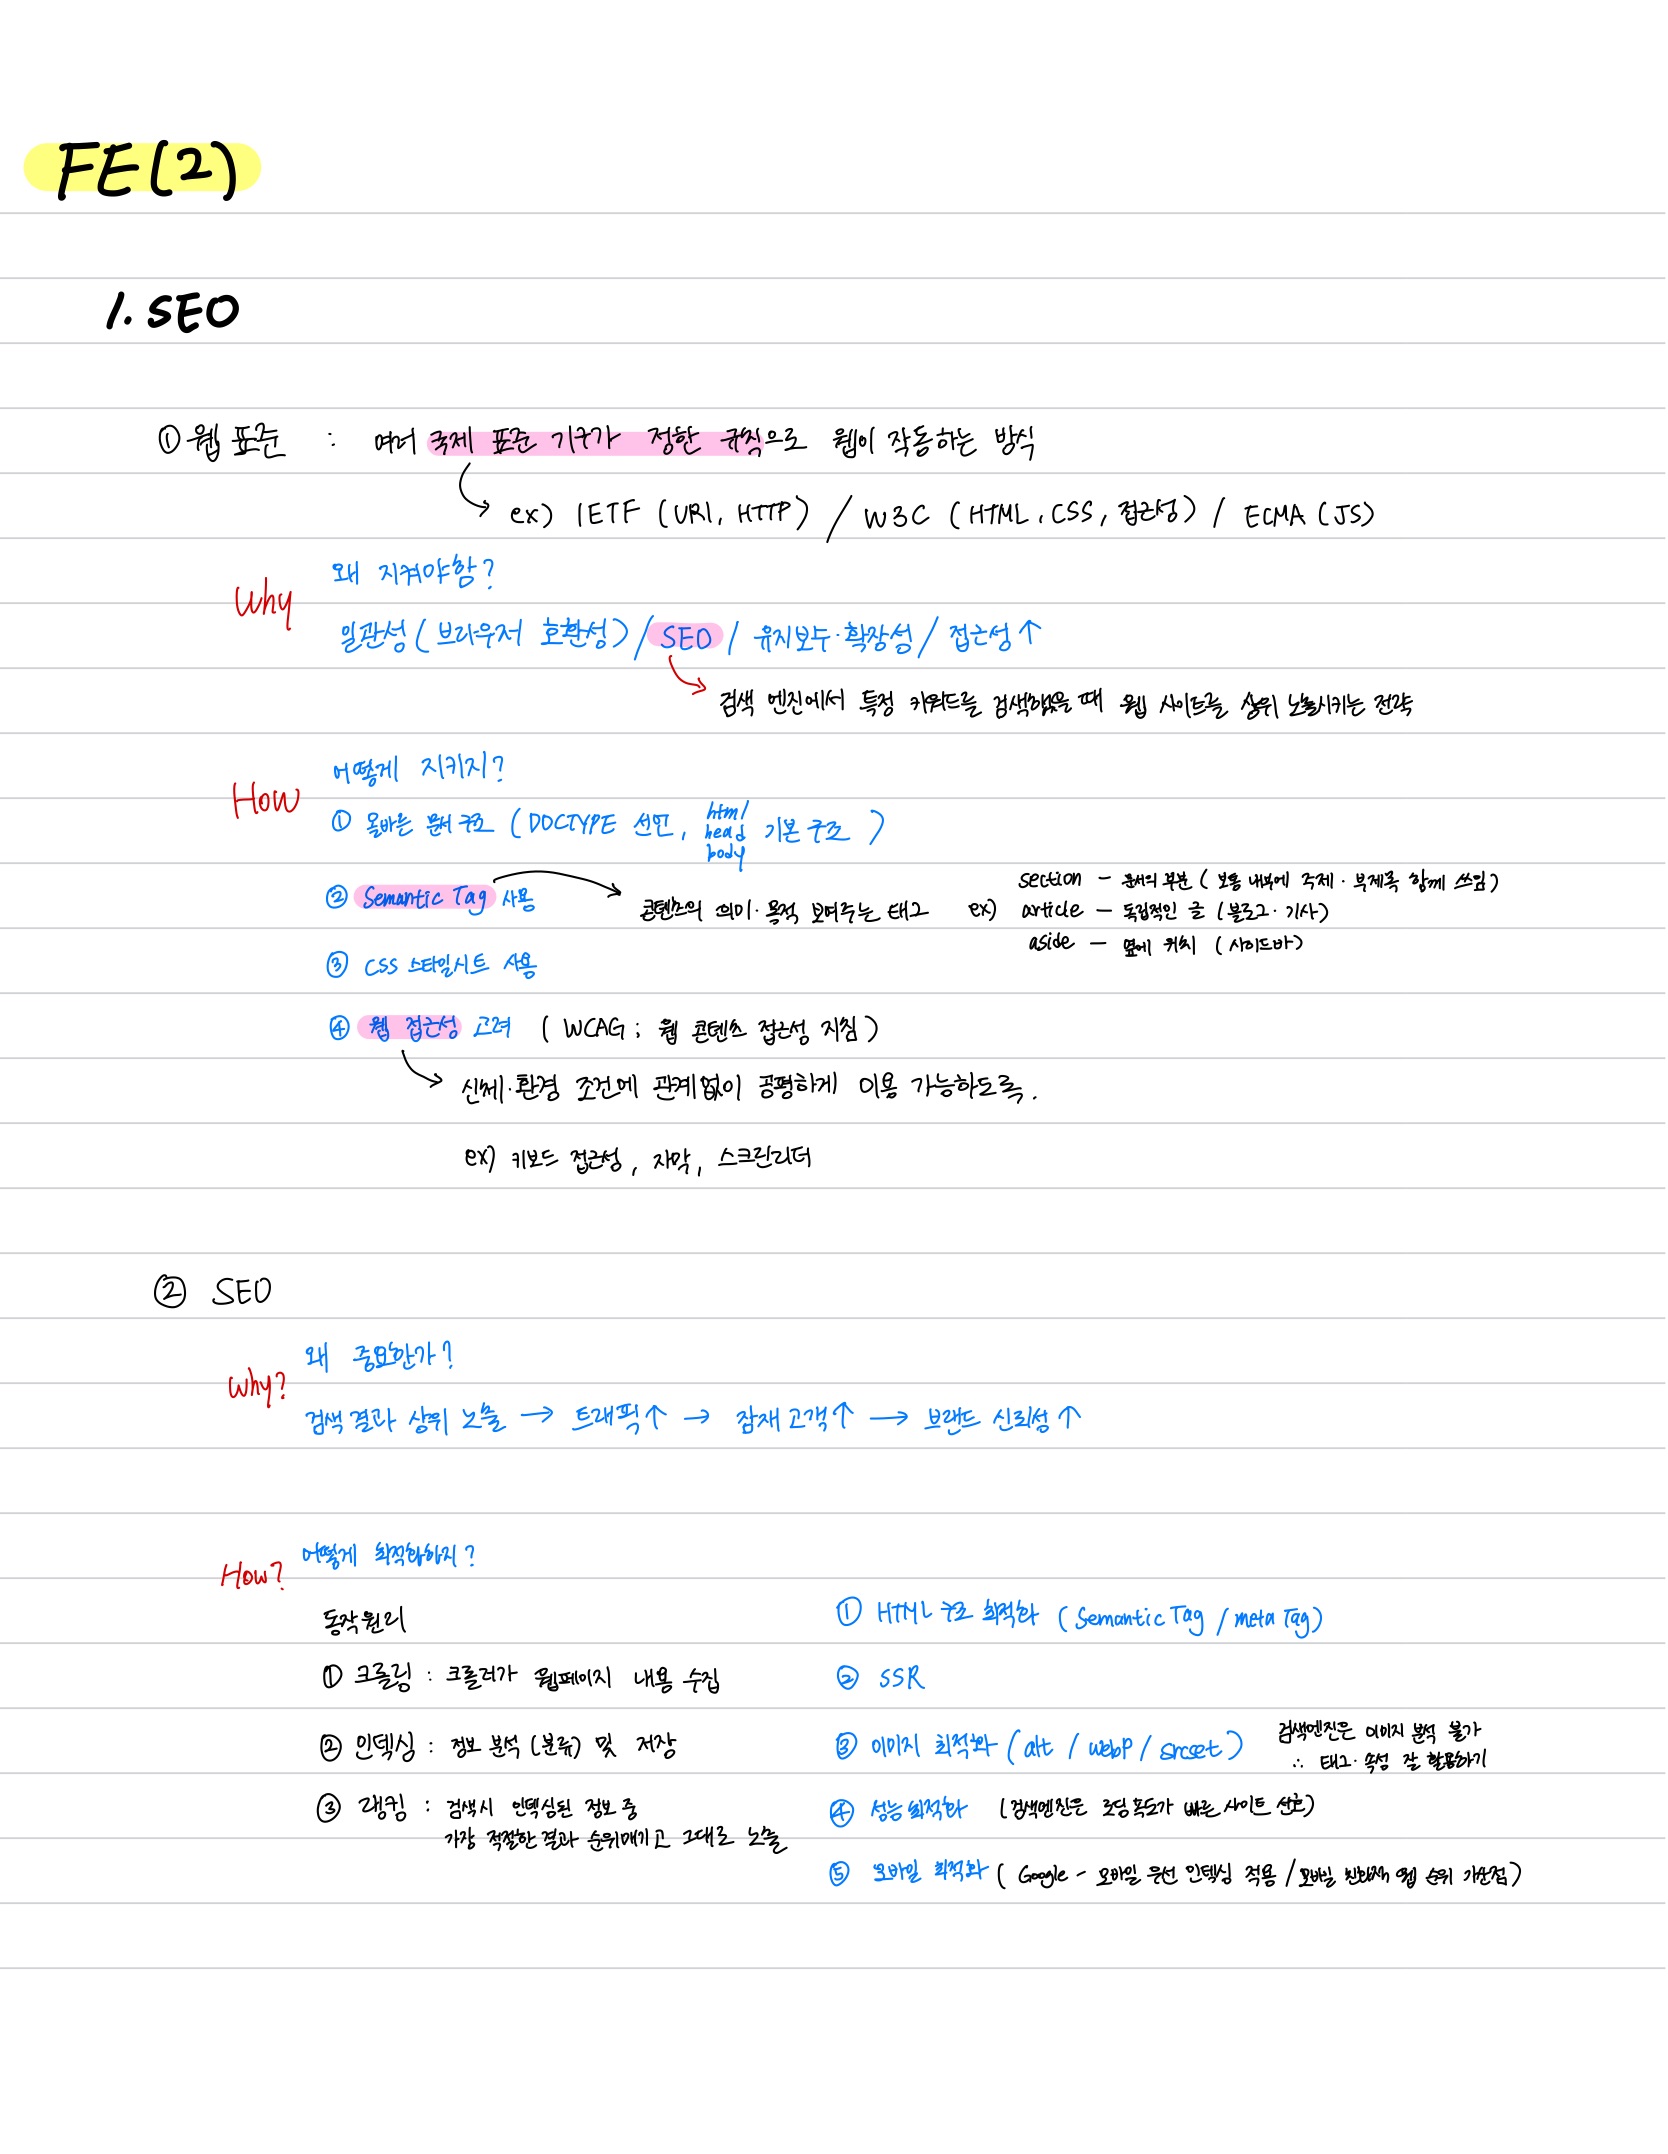 FE(2)
1. SEO
① 웹 표준 : 여러 국제 표준 기구가 정한 규칙으로 웹이 작동하는 방식
ex) IETF (URI, HTTP) / W3C (HTML, CSS, 접근성) / ECMA (JS)
왜 지켜야함?
Why
일관성 (브라우저 호환성) / SEO / 유지보수·확장성 / 접근성↑
검색 엔진에서 특정 키워드를 검색했을 때 웹 사이트를 상위 노출시키는 전략
어떻게 지키지?
How
① 올바른 문서 구조 (DOCTYPE 선언, html head body 기본 구조)
② Semantic Tag 사용
콘텐츠의 의미·목적 보여주는 태그
ex) section - 문서의 부분 (보통 내부에 주제·부제목 함께 쓰임)
article - 독립적인 글 (블로그·기사)
aside - 옆에 위치 (사이드바)
③ CSS 스타일시트 사용
④ 웹 접근성 고려 (WCAG ; 웹 콘텐츠 접근성 지침)
신체·환경 조건에 관계없이 공평하게 이용 가능하도록.
ex) 키보드 접근성, 자막, 스크린리더
② SEO
왜 중요한가?
Why?
검색 결과 상위 노출 → 트래픽↑ → 잠재 고객↑ → 브랜드 신뢰성↑
어떻게 최적화하지?
How?
동작원리
① 크롤링 : 크롤러가 웹페이지 내용 수집
② 인덱싱 : 정보 분석 (분류) 및 저장
③ 랭킹 : 검색시 인덱싱된 정보 중
가장 적절한 결과 순위매기고 그대로 노출
① HTML 구조 최적화 (Semantic Tag / meta Tag)
② SSR
③ 이미지 최적화 (alt / webP / srcset)
검색엔진은 이미지 분석 불가
∴ 태그·속성 잘 활용하기
④ 성능 최적화 (검색엔진은 로딩 속도가 빠른 사이트 선호)
⑤ 모바일 최적화 (Google - 모바일 우선 인덱싱 적용 / 모바일 친화적 웹 순위 가산점)